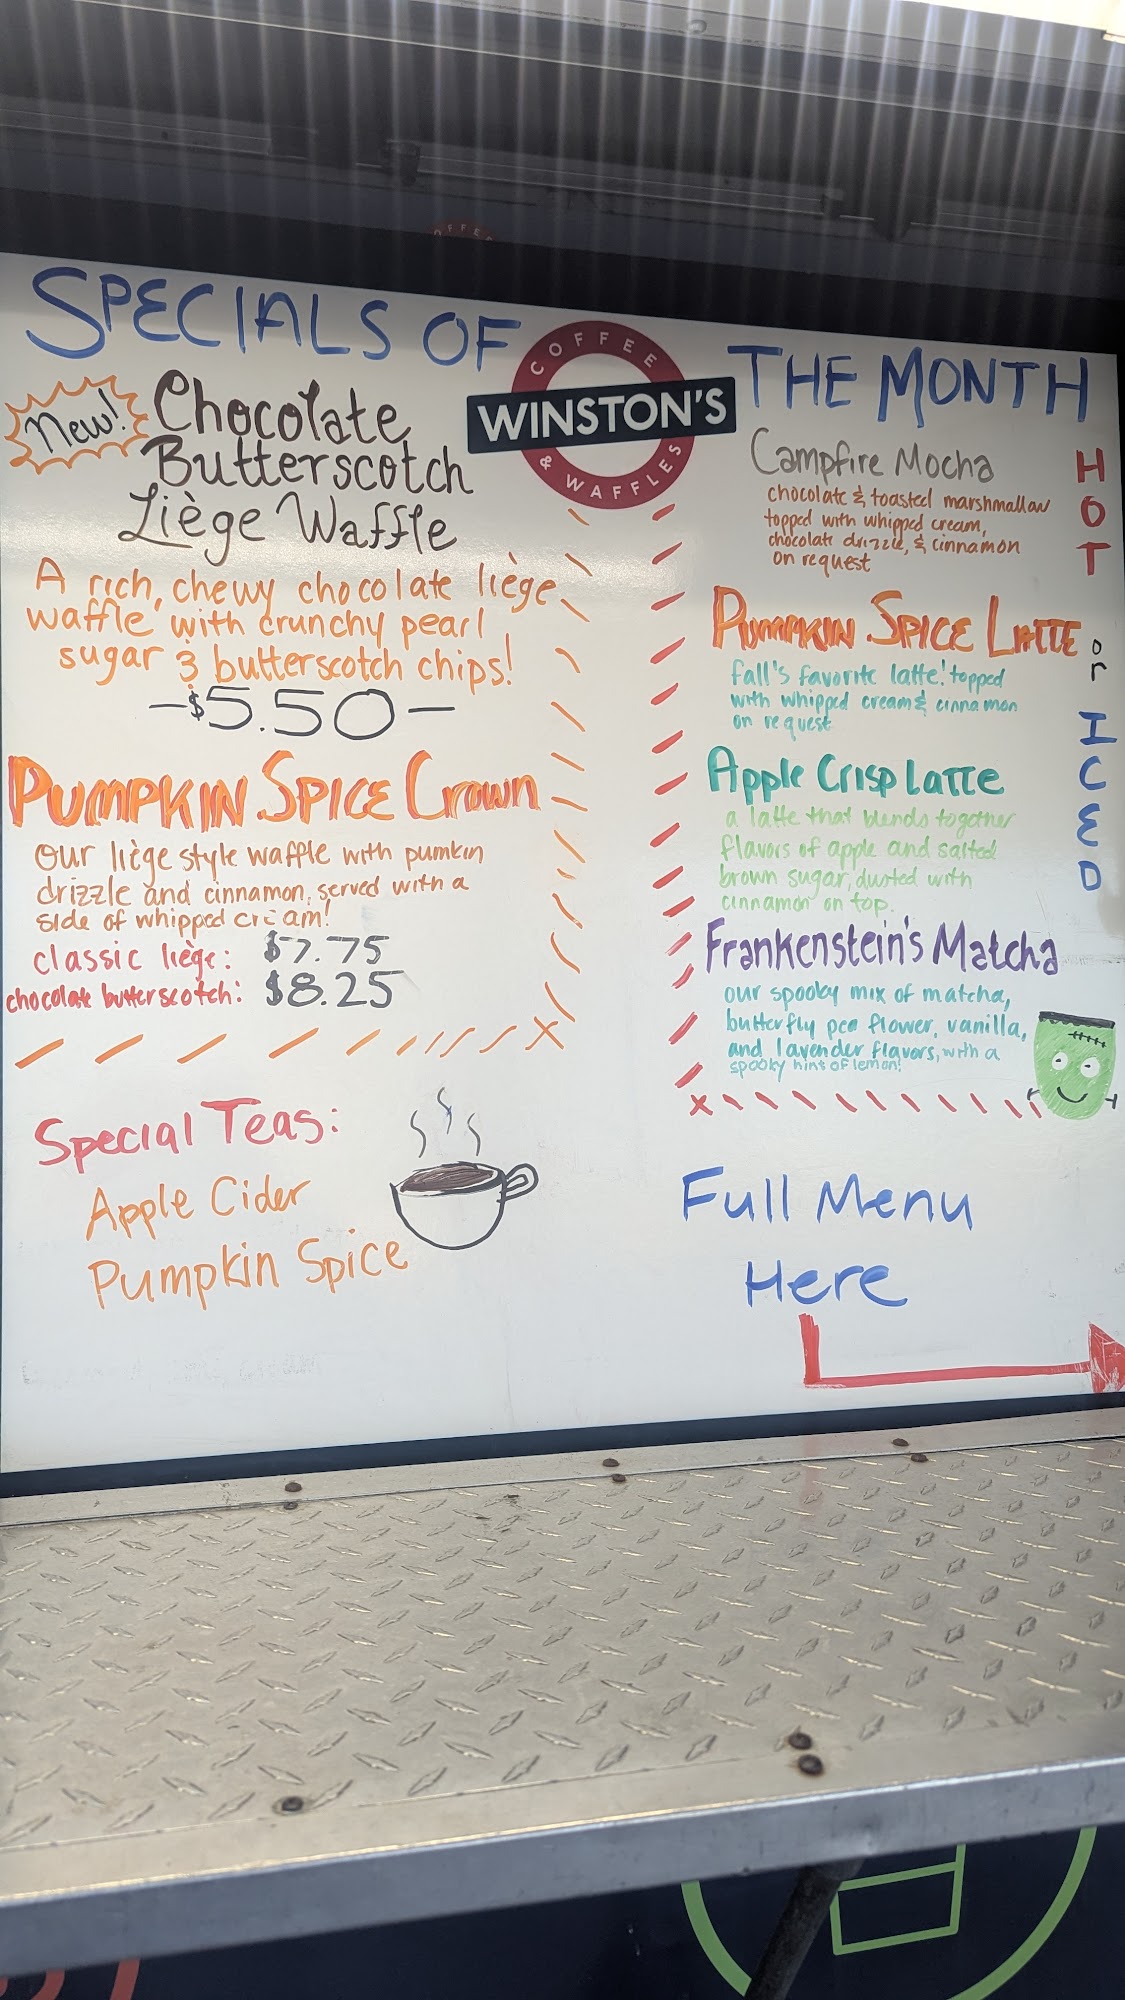 SPECIALS OF
COFFEE
WINSTON'S
& WAFFLES
THE MONTH
New!
Chocolate
Butterscotch
Liège Waffle
A rich, chewy chocolate liège
waffle with crunchy pearl
sugar & butterscotch chips!
-$5.50-
PUMPKIN SPICE Crown
our liège style waffle with pumkin
drizzle and cinnamon, served with a
side of whipped cream!
classic liège: $7.75
chocolate butterscotch: $8.25
Special Teas:
Apple Cider
Pumpkin Spice
Campfire Mocha
chocolate & toasted marshmallow
topped with whipped cream,
chocolate drizzle, & cinnamon
on request
PUMPKIN SPICE LATTE
fall's favorite latte! topped
with whipped cream & cinnamon
on request
Apple Crisp Latte
a latte that blends together
flavors of apple and salted
brown sugar, dusted with
cinnamon on top.
Frankenstein's Matcha
our spooky mix of matcha,
butterfly pea flower, vanilla,
and lavender flavors, with a
spooky hint of lemon!
HOT
or
ICED
Full Menu
Here